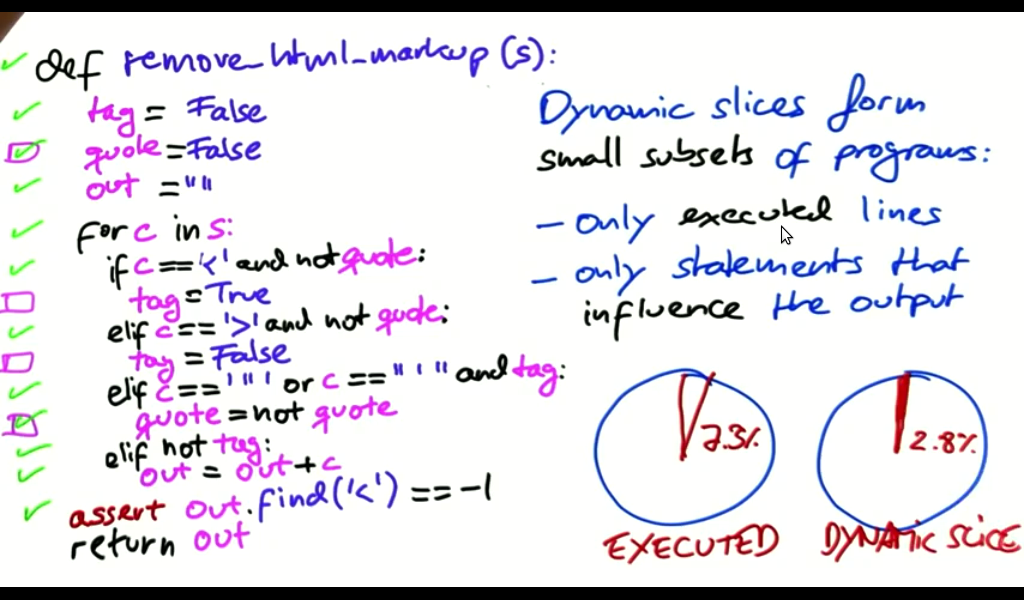 def remove_html_markup (s):
tag = False
quote = False
out = ""
for c in s:
if c == '<' and not quote:
tag = True
elif c == '>' and not quote:
tag = False
elif c == '"' or c == "'" and tag:
quote = not quote
elif not tag:
out = out + c
assert out.find('<') == -1
return out
Dynamic slices form
small subsets of programs:
- only executed lines
- only statements that
influence the output
7.3%
EXECUTED
2.8%
DYNAMIC SLICE